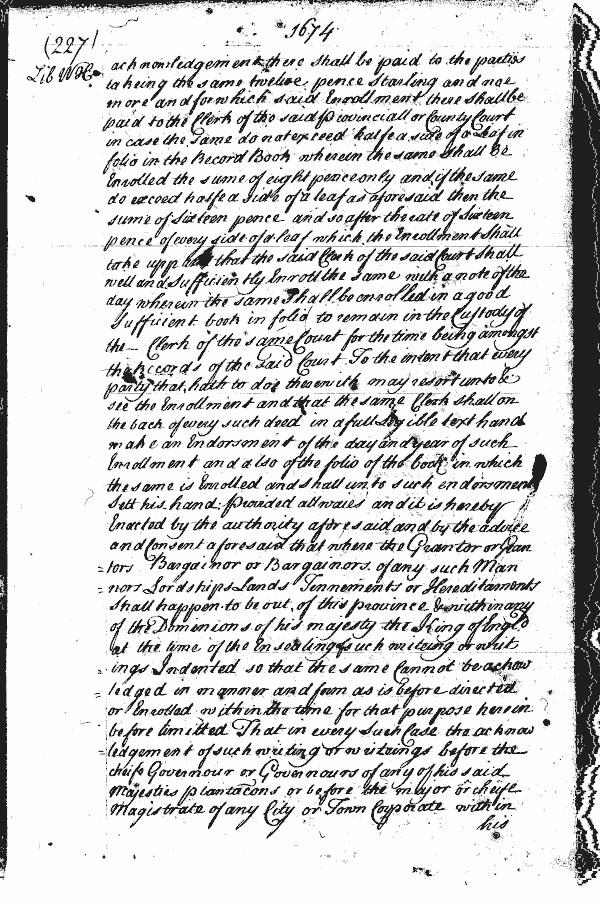 1674
(227)
Lib WH
acknowledgement there shall be paid to the parties
takeing the same twelve pence Starling and noe
more and for which said Enrollment there shall be
paid to the Clerk of the said Provinciall or County Court
in case the same do not exceed halfe a side of a Leaf in
folio in the Record Book wherein the same Shall be
Enrolled the sume of eight pence only and if the same
do exceed halfe a side of a leaf as aforesaid then the
sume of Sixteen pence and so after the rate of Sixteen
pence of every side of a leaf which the Enrollment Shall
take upp that the said Clerk of the said Court Shall
well and Sufficiently Enroll the same with a note of the
day wherein the same Shall be enrolled in a good
Sufficient book in folio to remain in the Custody of
the Clerk of the same Court for the time being amongst
the Records of the said Court To the intent that every
party that hath to doe therewith may resort unto &
see the Enrollment and that the same Clerk shall on
the back of every such deed in a full legible text hand
make an Endorsment of the day and year of such
Enrollment and also of the folio of the book in which
the same is Enrolled and shall unto such endorsment
Sett his hand. Provided allwaies and it is hereby
Enacted by the authority aforesaid and by the advice
and Consent aforesaid that where the Grantor or Gran
tors Bargainor or Bargainors of any such Man
nors Lordships Lands Tennements or Hereditaments
Shall happen to be out of this province & within any
of the Dominions of his majesty the King of Engld
at the time of the Ensealing of such writing or writ
ings Indented so that the same Cannot be acknow
ledged in manner and form as is before directed
or Enrolled within the time for that purpose herein
before limitted That in every Such Case the acknow
ledgement of such writing or writeings before the
cheife Governour or Governours of any of his said
Majesties plantacons or before the major or cheife
Magistrate of any City or Town Corporate within
his